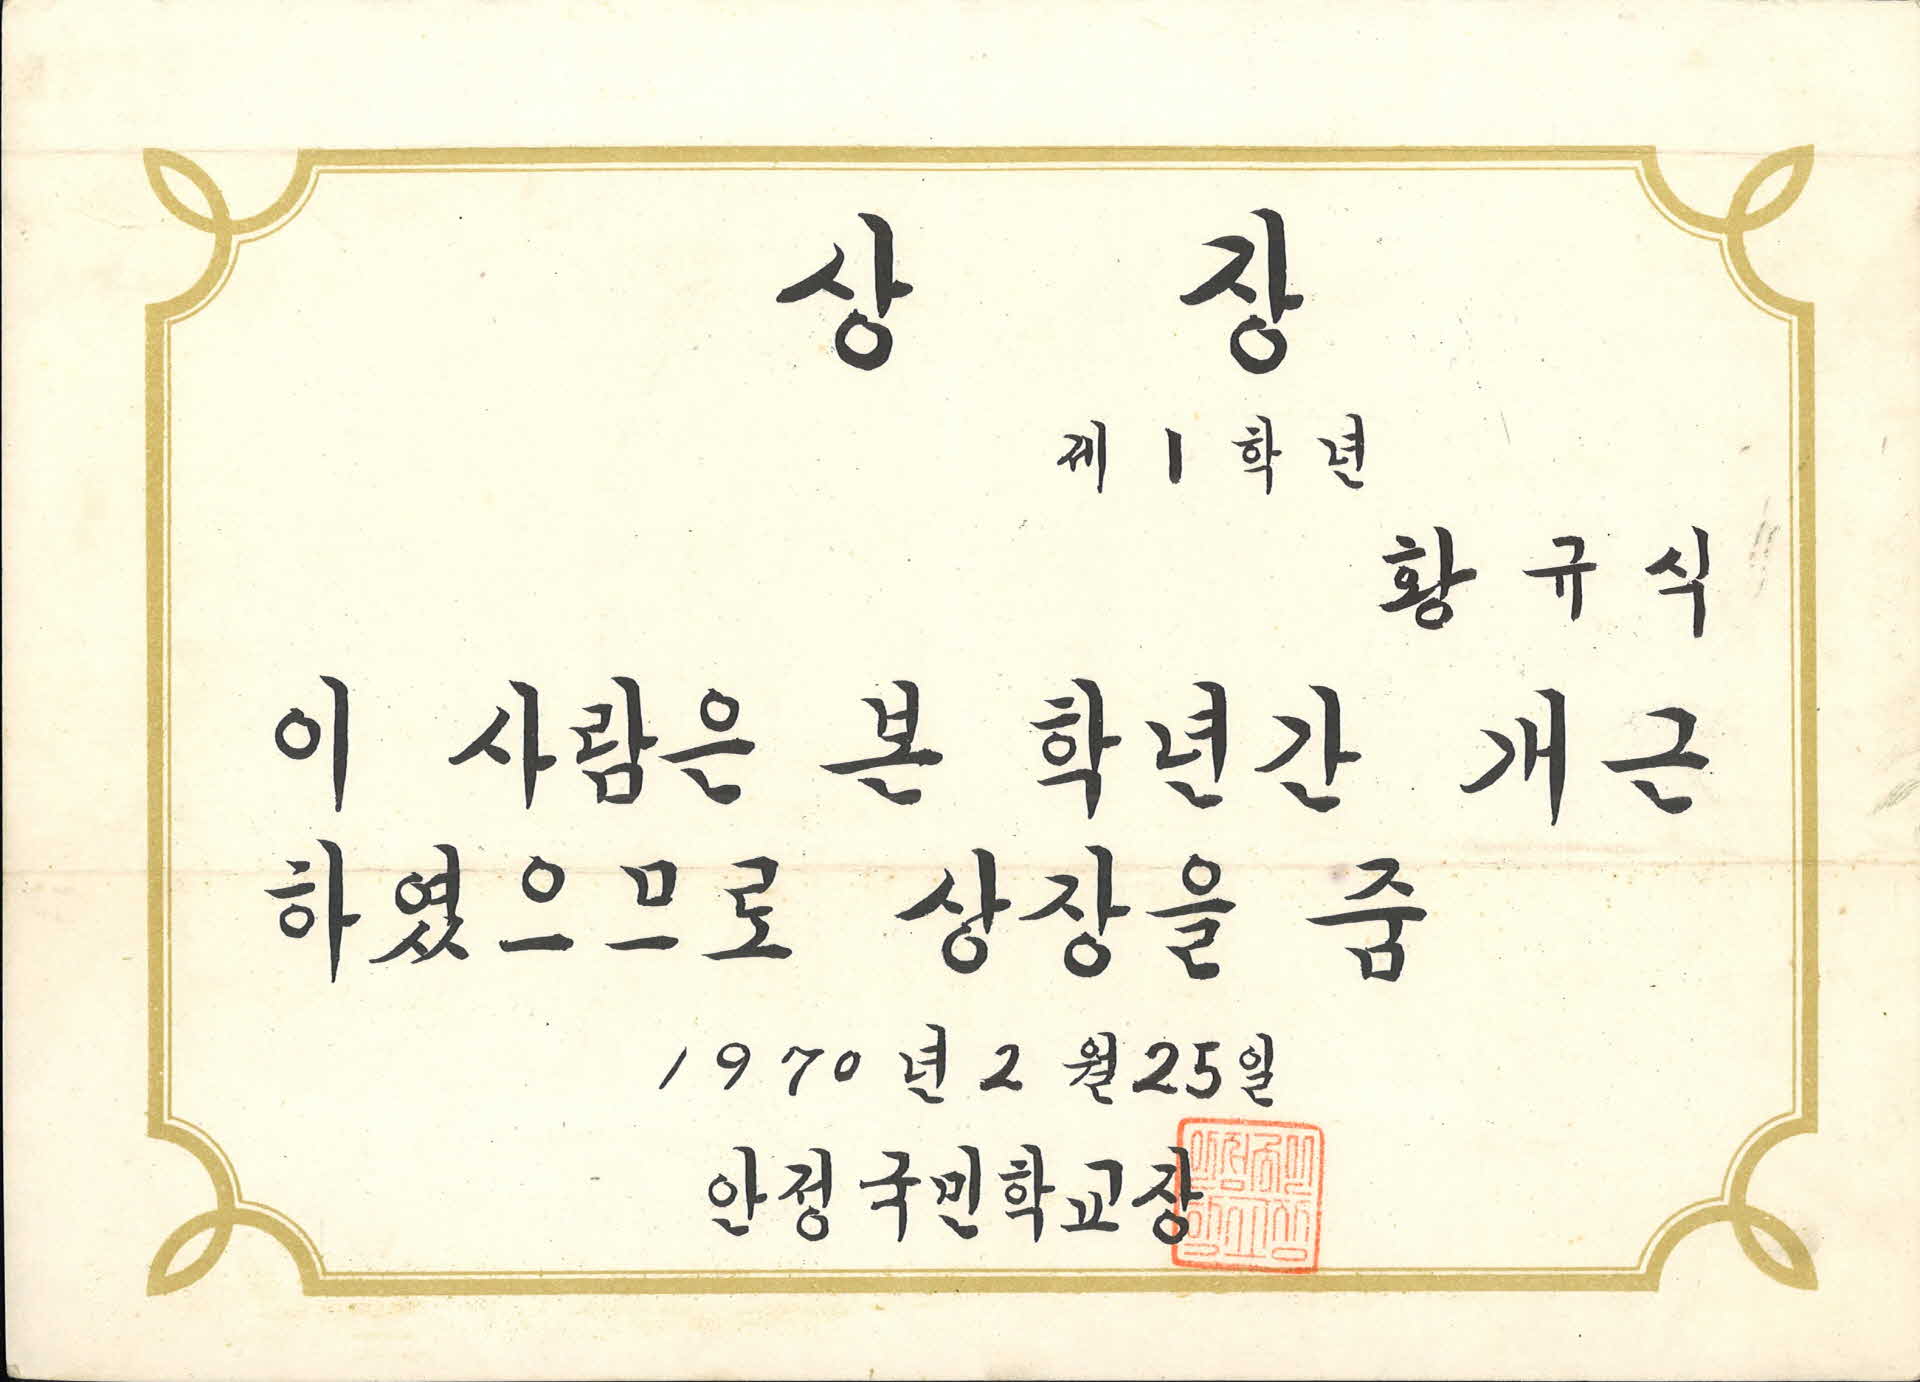 상 장
제 1 학 년
황 규 식
이 사람은 본 학년간 개근
하였으므로 상장을 줌
1970년 2월 25일
안정국민학교장
안정국민
학교장